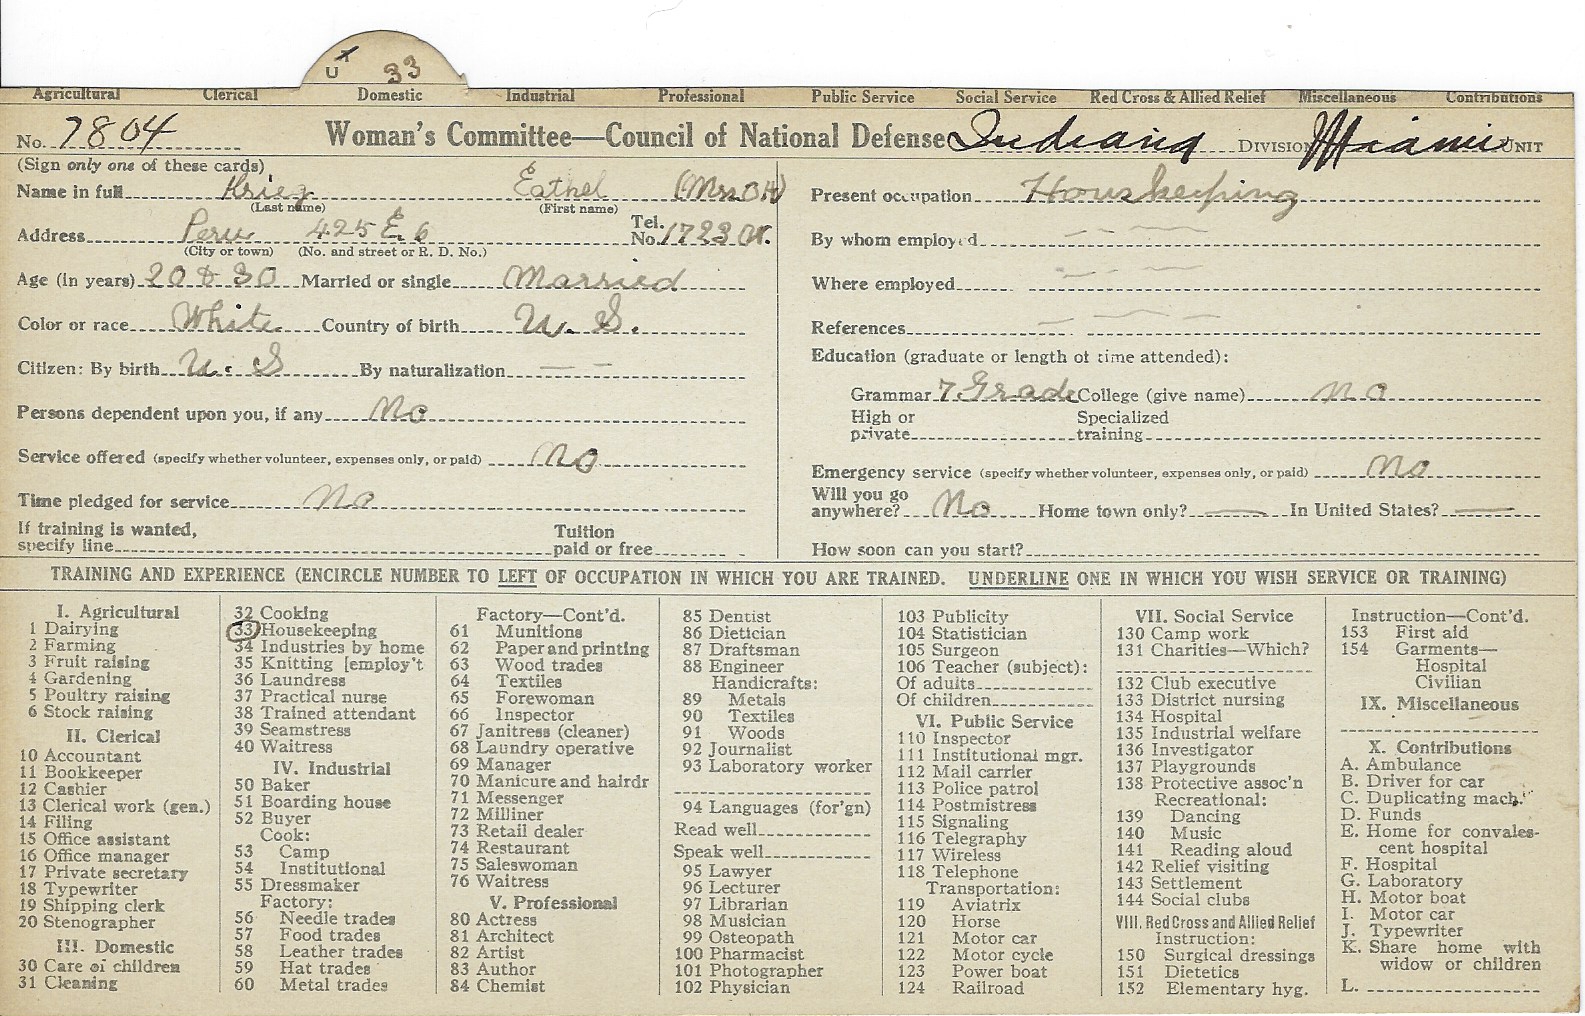 U 33
Agricultural Clerical Domestic Industrial Professional Public Service Social Service Red Cross & Allied Relief Miscellaneous Contributions
No. 7804 Woman's Committee—Council of National Defense Indiana Division Miami Unit
(Sign only one of these cards)
Name in full Krieg Eathel (Mrs. O H)
(Last name) (First name)
Address Peru 425 E 6 Tel. No. 1723
(City or town) (No. and street or R. D. No.)
Age (in years) 20 & 30 Married or single Married
Color or race White Country of birth U. S.
Citizen: By birth U. S By naturalization — —
Persons dependent upon you, if any No
Service offered (specify whether volunteer, expenses only, or paid) No
Time pledged for service No
If training is wanted, specify line Tuition paid or free
Present occupation Houskeeping
By whom employed
Where employed
References
Education (graduate or length of time attended):
Grammar 7 Grade College (give name) no
High or private Specialized training
Emergency service (specify whether volunteer, expenses only, or paid) No
Will you go anywhere? No Home town only? — In United States? —
How soon can you start?
TRAINING AND EXPERIENCE (ENCIRCLE NUMBER TO LEFT OF OCCUPATION IN WHICH YOU ARE TRAINED. UNDERLINE ONE IN WHICH YOU WISH SERVICE OR TRAINING)
I. Agricultural
1 Dairying
2 Farming
3 Fruit raising
4 Gardening
5 Poultry raising
6 Stock raising
II. Clerical
10 Accountant
11 Bookkeeper
12 Cashier
13 Clerical work (gen.)
14 Filing
15 Office assistant
16 Office manager
17 Private secretary
18 Typewriter
19 Shipping clerk
20 Stenographer
III. Domestic
30 Care of children
31 Cleaning
32 Cooking
33 Housekeeping
34 Industries by home
35 Knitting [employ't
36 Laundress
37 Practical nurse
38 Trained attendant
39 Seamstress
40 Waitress
IV. Industrial
50 Baker
51 Boarding house
52 Buyer
Cook:
53 Camp
54 Institutional
55 Dressmaker
Factory:
56 Needle trades
57 Food trades
58 Leather trades
59 Hat trades
60 Metal trades
Factory—Cont'd.
61 Munitions
62 Paper and printing
63 Wood trades
64 Textiles
65 Forewoman
66 Inspector
67 Janitress (cleaner)
68 Laundry operative
69 Manager
70 Manicure and hairdr
71 Messenger
72 Milliner
73 Retail dealer
74 Restaurant
75 Saleswoman
76 Waitress
V. Professional
80 Actress
81 Architect
82 Artist
83 Author
84 Chemist
85 Dentist
86 Dietician
87 Draftsman
88 Engineer
Handicrafts:
89 Metals
90 Textiles
91 Woods
92 Journalist
93 Laboratory worker
94 Languages (for'gn)
Read well
Speak well
95 Lawyer
96 Lecturer
97 Librarian
98 Musician
99 Osteopath
100 Pharmacist
101 Photographer
102 Physician
103 Publicity
104 Statistician
105 Surgeon
106 Teacher (subject):
Of adults
Of children
VI. Public Service
110 Inspector
111 Institutional mgr.
112 Mail carrier
113 Police patrol
114 Postmistress
115 Signaling
116 Telegraphy
117 Wireless
118 Telephone
Transportation:
119 Aviatrix
120 Horse
121 Motor car
122 Motor cycle
123 Power boat
124 Railroad
VII. Social Service
130 Camp work
131 Charities—Which?
132 Club executive
133 District nursing
134 Hospital
135 Industrial welfare
136 Investigator
137 Playgrounds
138 Protective assoc'n
Recreational:
139 Dancing
140 Music
141 Reading aloud
142 Relief visiting
143 Settlement
144 Social clubs
VIII. Red Cross and Allied Relief
Instruction:
150 Surgical dressings
151 Dietetics
152 Elementary hyg.
Instruction—Cont'd.
153 First aid
154 Garments—
Hospital
Civilian
IX. Miscellaneous
X. Contributions
A. Ambulance
B. Driver for car
C. Duplicating mach.
D. Funds
E. Home for convales-
cent hospital
F. Hospital
G. Laboratory
H. Motor boat
I. Motor car
J. Typewriter
K. Share home with
widow or children
L.